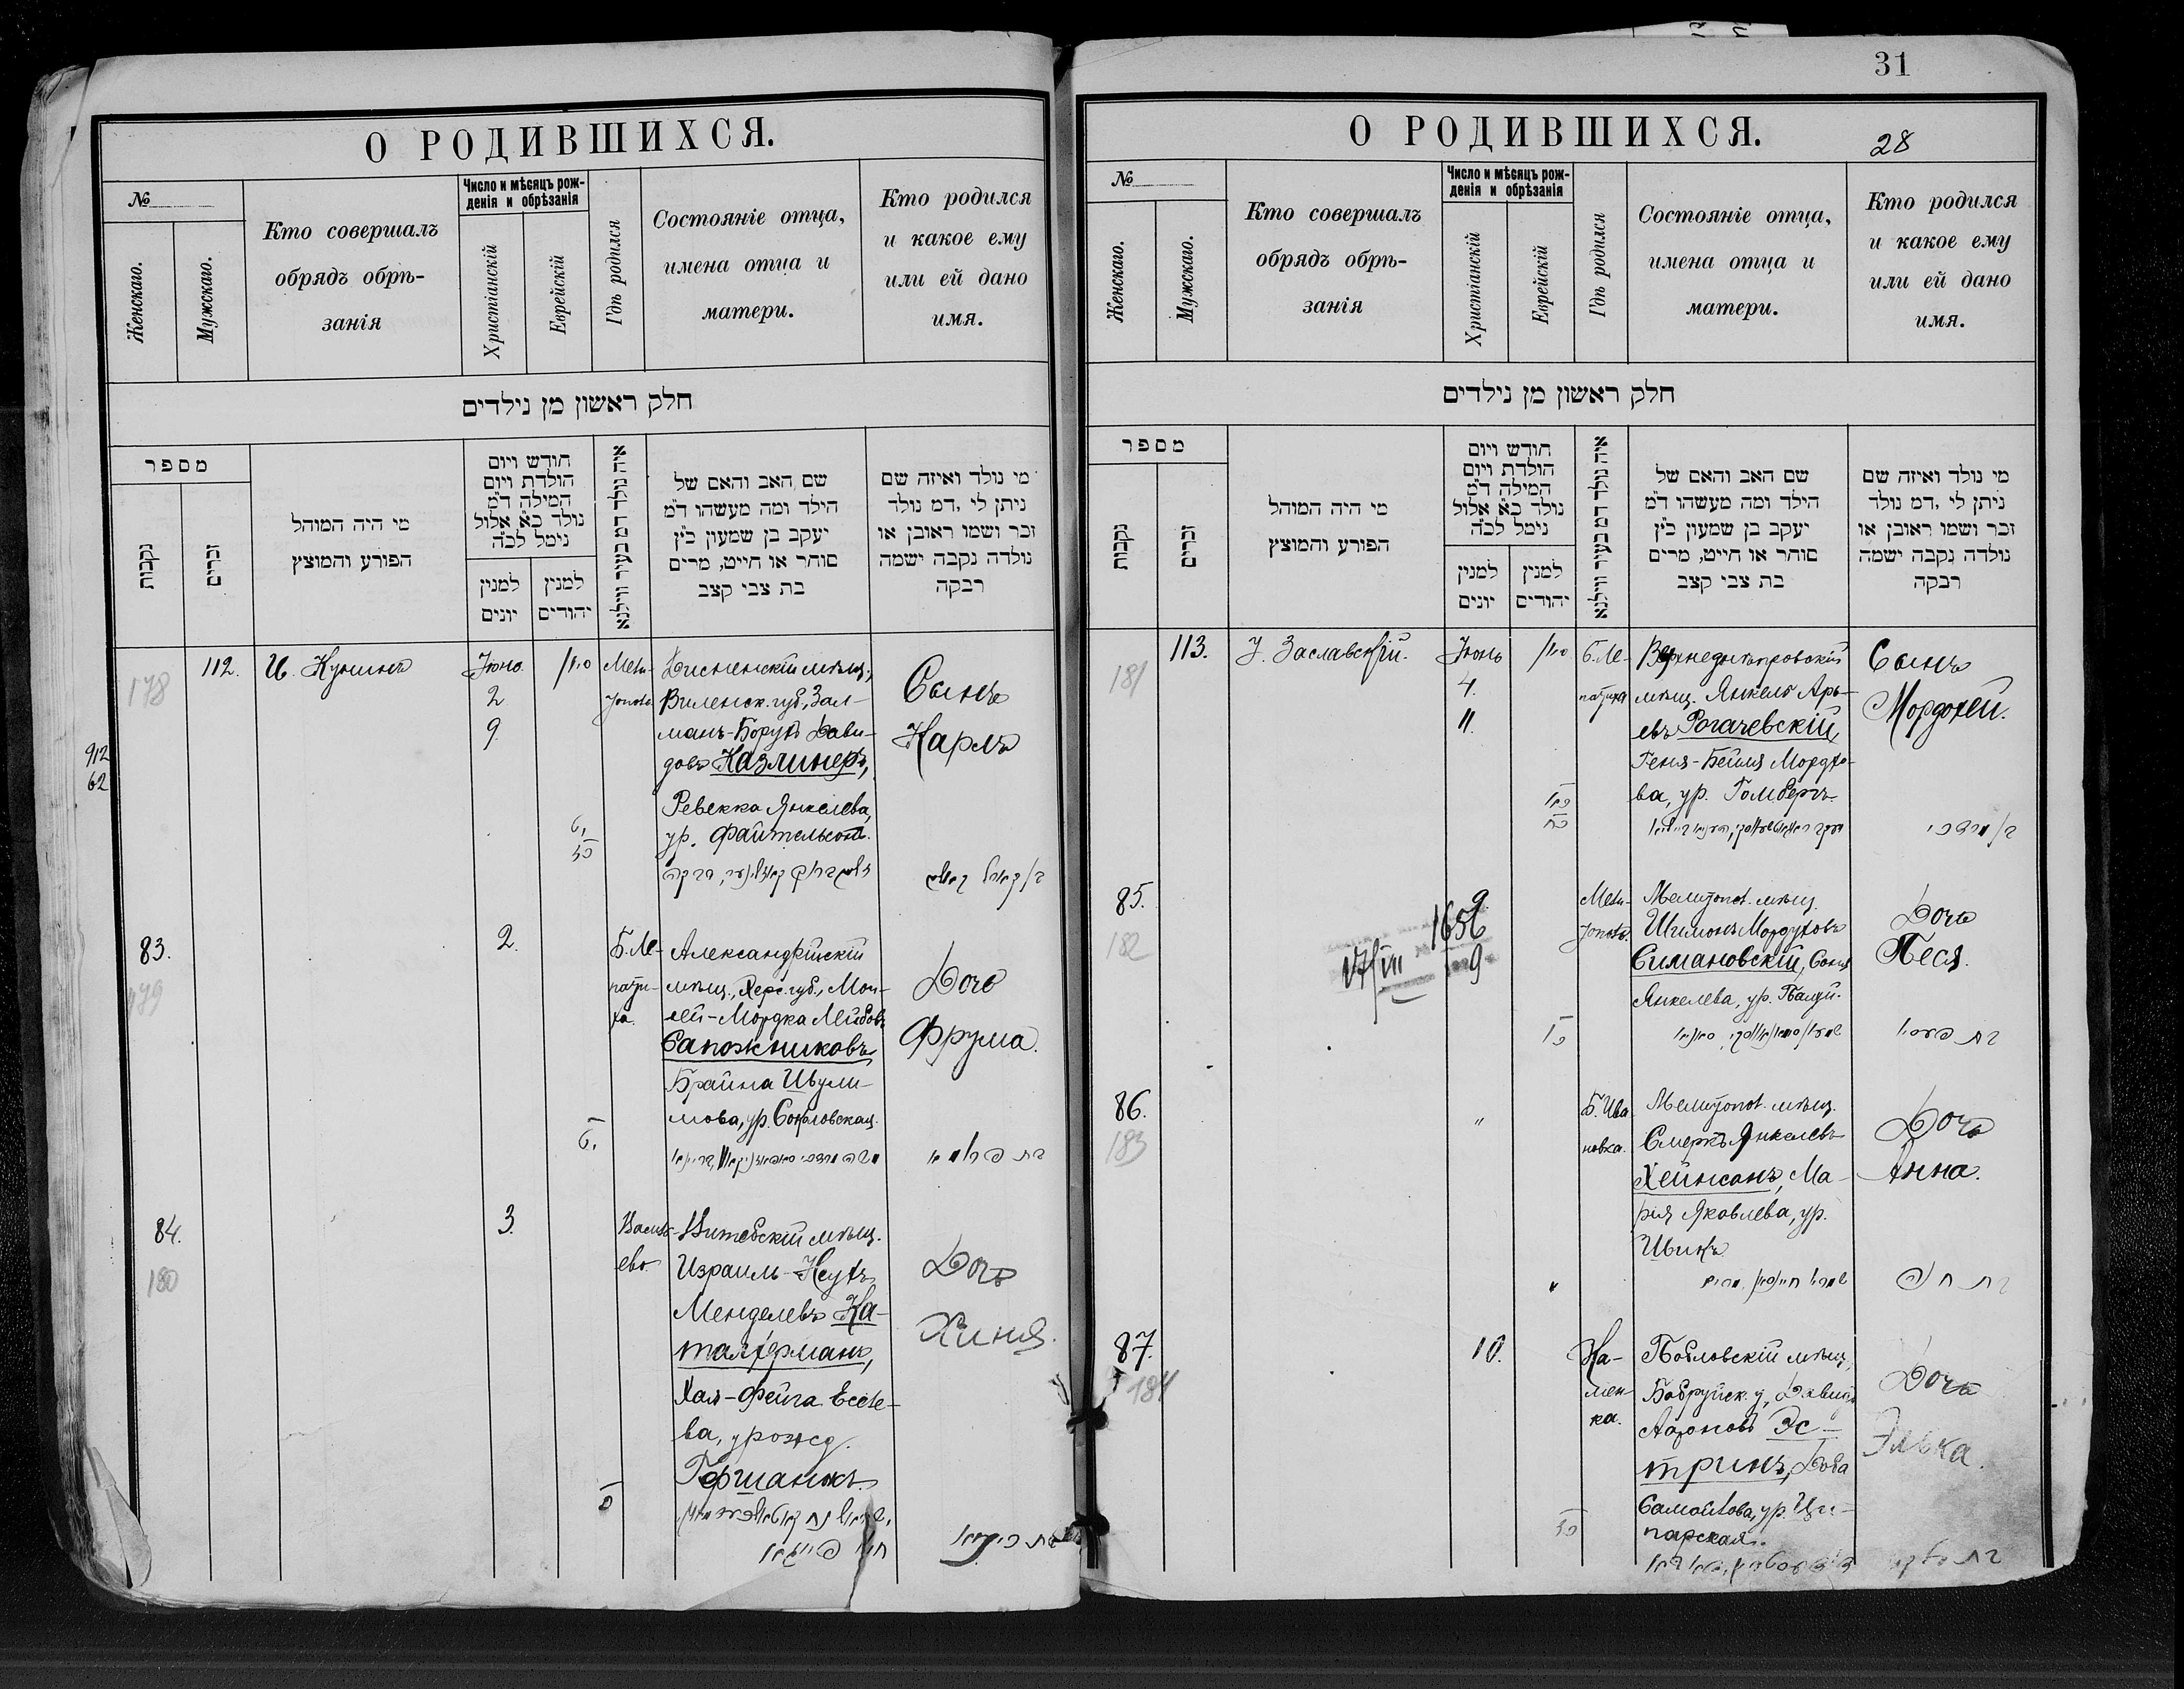 О РОДИВШИХСЯ.
№
Женскаго.
Мужскаго.
Кто совершалъ
обрядъ обрѣ-
занія
Число и мѣсяцъ рож-
денія и обрѣзанія
Христіанскій
Еврейскій
Гдѣ родился
Состояніе отца,
имена отца и
матери.
Кто родился
и какое ему
или ей дано
имя.
חלק ראשון מן נילדים
מספר
נקבות
זכרים
מי היה המוהל
הפורע והמוצץ
חודש ויום
הולדת ויום
המילה ד״מ
נולד כ״א אלול
נימל לכ״ה
למנין
יונים
למנין
יהודים
איה נולד דמ בעיר ווילנא
שם האב והאם של
הילד ומה מעשהו ד״מ
יעקב בן שמעון כ״ץ
סוחר או חייט, מרים
בת צבי קצב
מי נולד ואיזה שם
ניתן לי ,דמ נולד
זכר ושמו ראובן או
נולדה נקבה ישמה
רבקה
112.
178
И. Кушинъ
Іюнь
2
9
סיון
Мели-
тополь
Дисненскій мѣщ.,
Виленск. губ., Зал-
манъ-Борухъ Дави-
довъ Казлинеръ,
Ревекка Янкелева,
ур. Файтельсонъ.
Сынъ
Карлъ
912
62
83.
179
2.
Б. Ле-
пати-
ха.
Александрійскій
мѣщ., Херс. губ., Мои-
сей-Мордка Лейбовъ
Сапожниковъ,
Брайна Шули-
мова, ур. Соколовская.
Дочь
Фрума.
בת פרומא
84.
180
3.
Василь-
ево
Витебскій мѣщ.
Израиль-Неухъ
Менделевъ Ка-
талхерманъ,
Хая-Фейга Есое-
ва, урожд.
Гершанокъ.
חיי פייגא
Дочь
Хиня.
31
О РОДИВШИХСЯ.
28
№
Женскаго.
Мужскаго.
Кто совершалъ
обрядъ обрѣ-
занія
Число и мѣсяцъ рож-
денія и обрѣзанія
Христіанскій
Еврейскій
Гдѣ родился
Состояніе отца,
имена отца и
матери.
Кто родился
и какое ему
или ей дано
имя.
חלק ראשון מן נילדים
מספר
נקבות
זכרים
מי היה המוהל
הפורע והמוצץ
חודש ויום
הולדת ויום
המילה ד״מ
נולד כ״א אלול
נימל לכ״ה
למנין
יונים
למנין
יהודים
איה נולד דמ בעיר ווילנא
שם האב והאם של
הילד ומה מעשהו ד״מ
יעקב בן שמעון כ״ץ
סוחר או חייט, מרים
בת צבי קצב
מי נולד ואיזה שם
ניתן לי ,דמ נולד
זכר ושמו ראובן או
נולדה נקבה ישמה
רבקה
113.
181
У. Заславскій.
Іюнь
4.
11.
סיון
Б. Ле-
патиха
Верхнеднѣпровскій
мѣщ. Янкель Арь-
евъ Рогачевскій,
Геня-Бейля Мордхо-
ва, ур. Гомбергъ
Сынъ
Мордохей.
ב/ מרדכי
85.
182
9.
1656
17/VII 9
Мели-
тополь.
Мелитопол. мѣщ.
Шимонъ Мордуховъ
Симановскій, Соня
Янкелева, ур.
Дочь
Песя.
בת פעסי
86.
183
"
Б. Ива
новка.
Мелитопол. мѣщ.
Смеркъ Янкелевъ
Хейнсонъ, Ма-
рія Яковлева, ур.
Шикъ
Дочь
Анна.
בת חנה
87.
184
10.
Ка-
мен-
ка.
мѣщ.,
Бобруйск. у., Давидъ
Ароновъ Эс-
тринъ, Доба
Самойлова, ур. Ци-
парская.
Дочь
Элька.